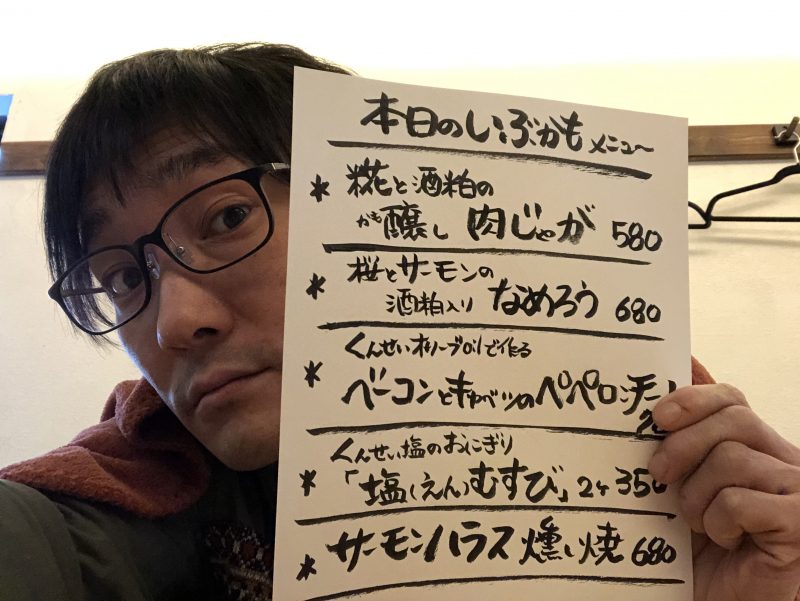 本日のいぶかも メニュー
* 糀と酒粕の
かも
醸し 肉じゃが 580
* 桜とサーモンの
酒粕入り なめろう 680
くんせいオリーブoilで作る
* ベーコンとキャベツのペペロンチーノ
くんせい塩のおにぎり
* 「塩(えん)むすび」2ヶ 350
* サーモンハラス 燻し焼 680